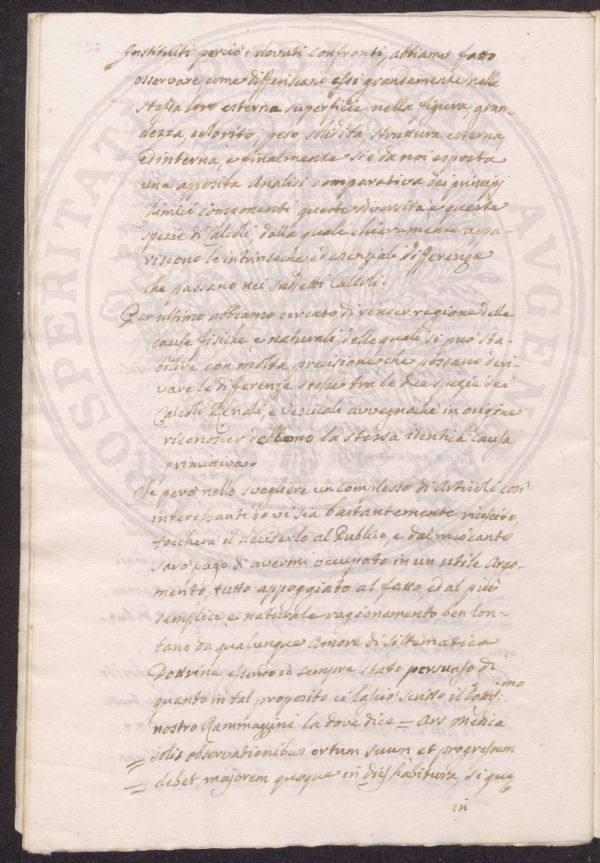 Instituiti perciò i dovuti confronti, abbiamo fatto
osservare come differiscano essi grandemente nella
stessa loro esterna superficie nella figura, gran-
dezza, colorito, peso solidità, struttura esterna,
ed interna, e finalmente si è da noi esposta
una apposita Analisi comparativa dei principj
chimici componenti queste diversità e queste
spezie di Calcoli, dalla quale chiaramente appa-
riscono le intrinseche ed essenziali differenze
che passano nei suddetti Calcoli.
Per ultimo abbiamo cercato di render ragione delle
cause fisiche e naturali, delle quale si può sta-
bilire con molta precisione che possano deri-
vare le differenze stesse tra le due spezie dei
Calcoli Renali, e Vescicali avvegnachè in origine
riconoscer debbono la stessa identica Causa
primitiva.
Se però nello svogliere un complesso di Articoli così
interessanti io vi sia bastantemente riuscito,
toccherà il deciderlo al Publico, e dal mio canto
sarò pago di avermi occupato in un utile Argo-
mento, tutto appoggiato al fatto, ed al più
semplice e naturale ragionamento ben lon-
tano da qualunque Amore di Sistematica
Dottrina essendo io sempre stato persuaso di
quanto in tal proposito ci lasciò scritto il Dottis:mo
nostro Rammazzini la dove dice = Ars Medica
= solis observationibus ortum suum et progressum
= debet, majorem quoque in dies habitura, si quæ
in